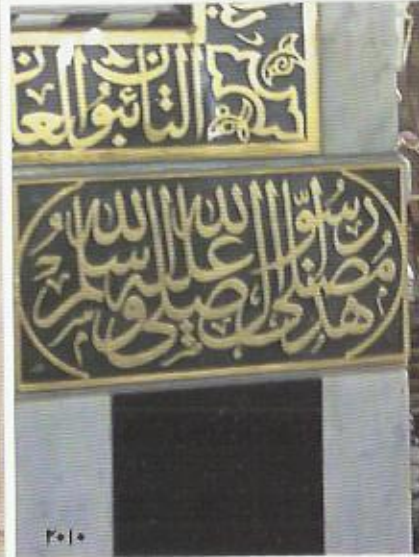 التائبون العا
هذا مصلى رسول الله صلى الله عليه وسلم
٢٠١٠